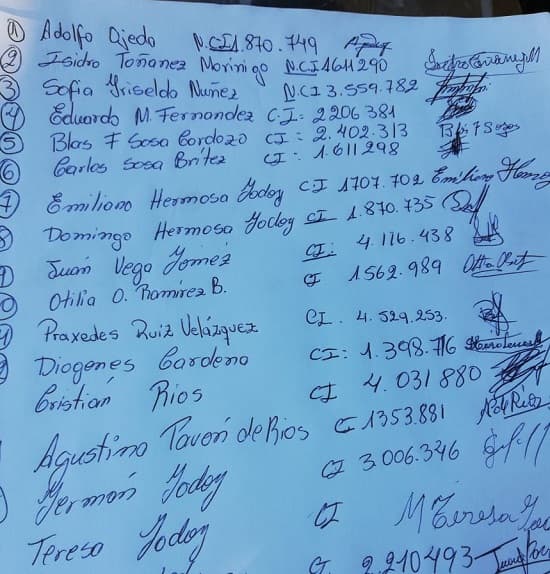 1 Adolfo Ojeda N.CI 1.870.749
2 Isidro Toñanez Morinigo N.CI 1611290
3 Sofia Griselda Nuñez N.CI 3.559.782
4 Eduardo M. Fernandez C.I= 2206381
5 Blas F Sosa Cardozo CI = 2.402.313
6 Carlos Sosa Britez CI = 1.611298
7 Emiliano Hermosa Godoy CI 1707.702 Emiliano
8 Domingo Hermosa Godoy CI 1.870.735
9 Juan Vega Gomez CI: 4.116.438
Otilia O. Ramirez B. CI 1562.989
Praxedes Ruiz Velázquez CI. 4.529.253.
Diogenes Cardena CI: 1.398.716
Cristián Rios CI 4.031880
Agustina Pavón de Rios CI 1353.881
Germán Godoy CI 3.006.346
Teresa Godoy CI M Teresa
2.210493